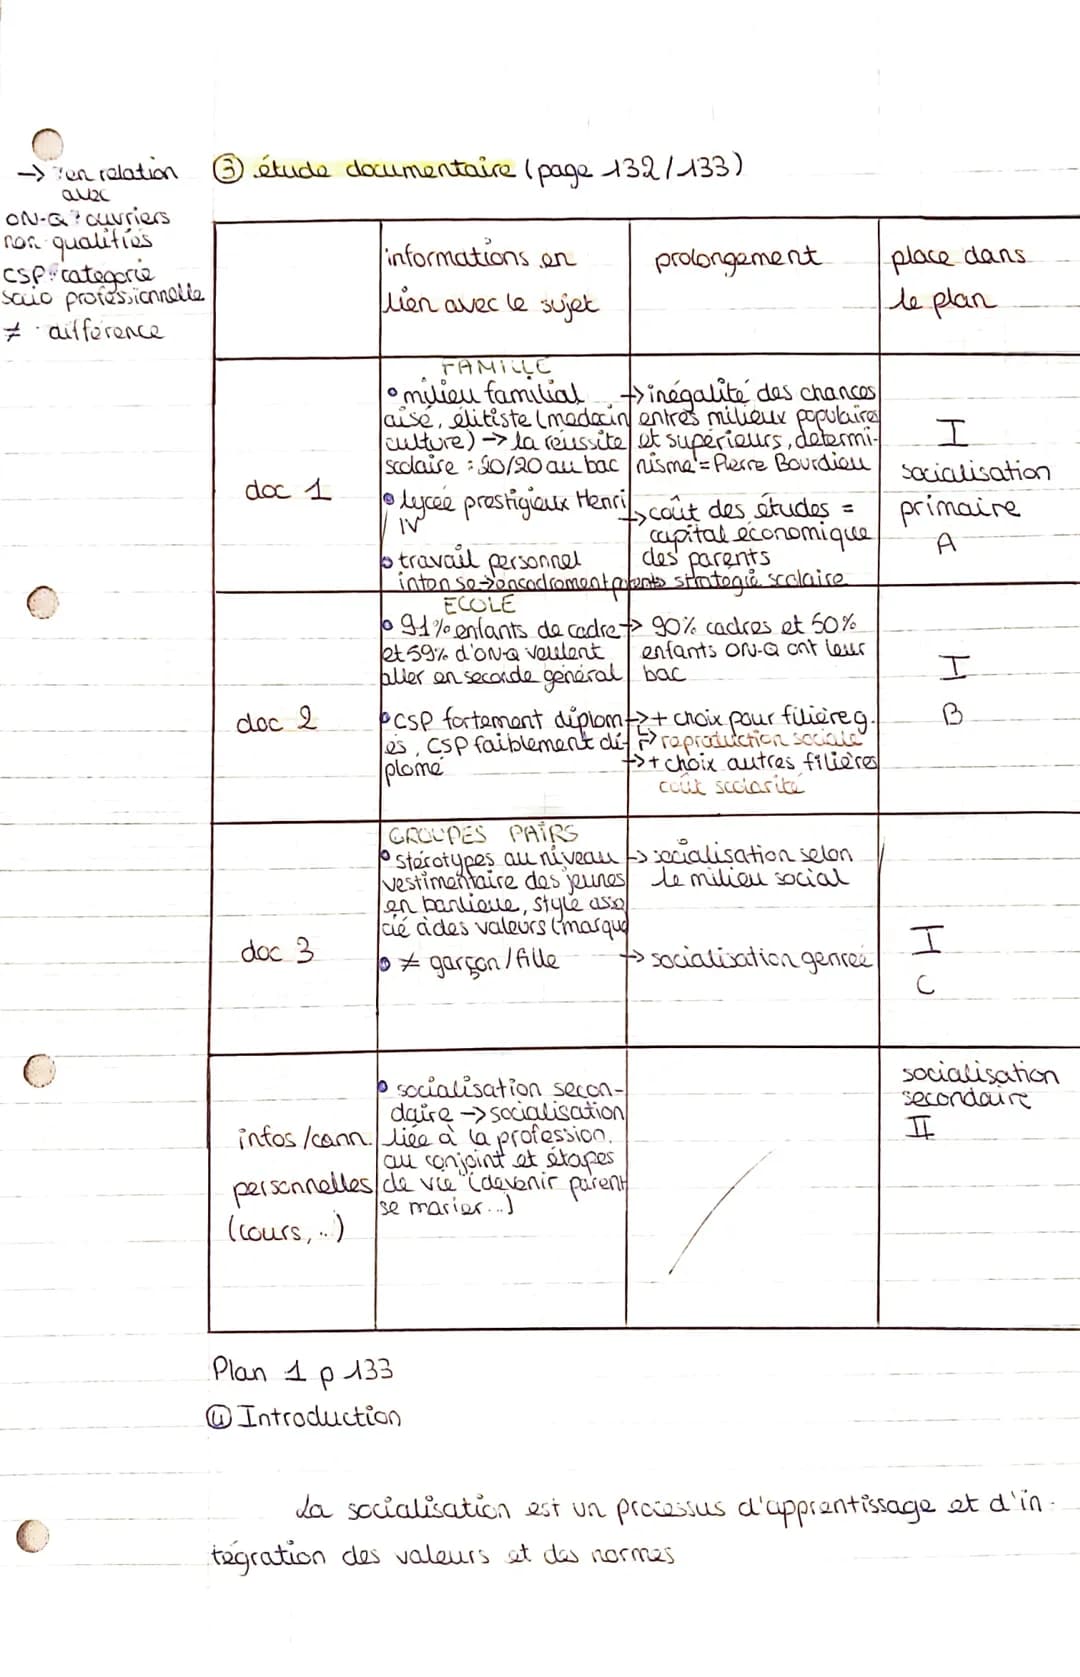 → : en relation
avec
ON-Q : ouvriers
non qualifiés
CSP : catégorie
socio professionnelle
≠ : différence
③ étude documentaire (page 132/133)
informations en
lien avec le sujet
prolongement
place dans
le plan
doc 1
FAMILLE
• milieu familial
aisé, élitiste (médecin
culture) → la réussite
scolaire : 20/20 au bac
• lycée prestigieux Henri
IV
• travail personnel
intense → encadrement parents stratégie scolaire
→ inégalité des chances
entres milieux populaires
et supérieurs, détermi-
nisme = Pierre Bourdieu
↳ coût des études =
capital économique
des parents
I
socialisation
primaire
A
doc 2
ECOLE
• 91% enfants de cadre
et 59% d'ON-Q veulent
aller en seconde général
• CSP fortement diplom-
és, CSP faiblement di-
plomé
→ 90% cadres et 50%
enfants ON-Q ont leur
bac
→ + choix pour filière g.
↳ reproduction sociale
→ + choix autres filières
coût scolarité
I
B
doc 3
GROUPES PAIRS
• stérotypes au niveau
vestimentaire des jeunes
en banlieue, style asso
cié à des valeurs (marque
• ≠ garçon / fille
→ socialisation selon
le milieu social
→ socialisation genrée
I
C
infos / conn.
personnelles
(cours, ..)
• socialisation secon-
daire → socialisation
liée à la profession,
au conjoint et étapes
de vie (devenir parent
se marier...)
socialisation
secondaire
II
Plan 1 p 133
④ Introduction
La socialisation est un processus d'apprentissage et d'in-
tégration des valeurs et des normes